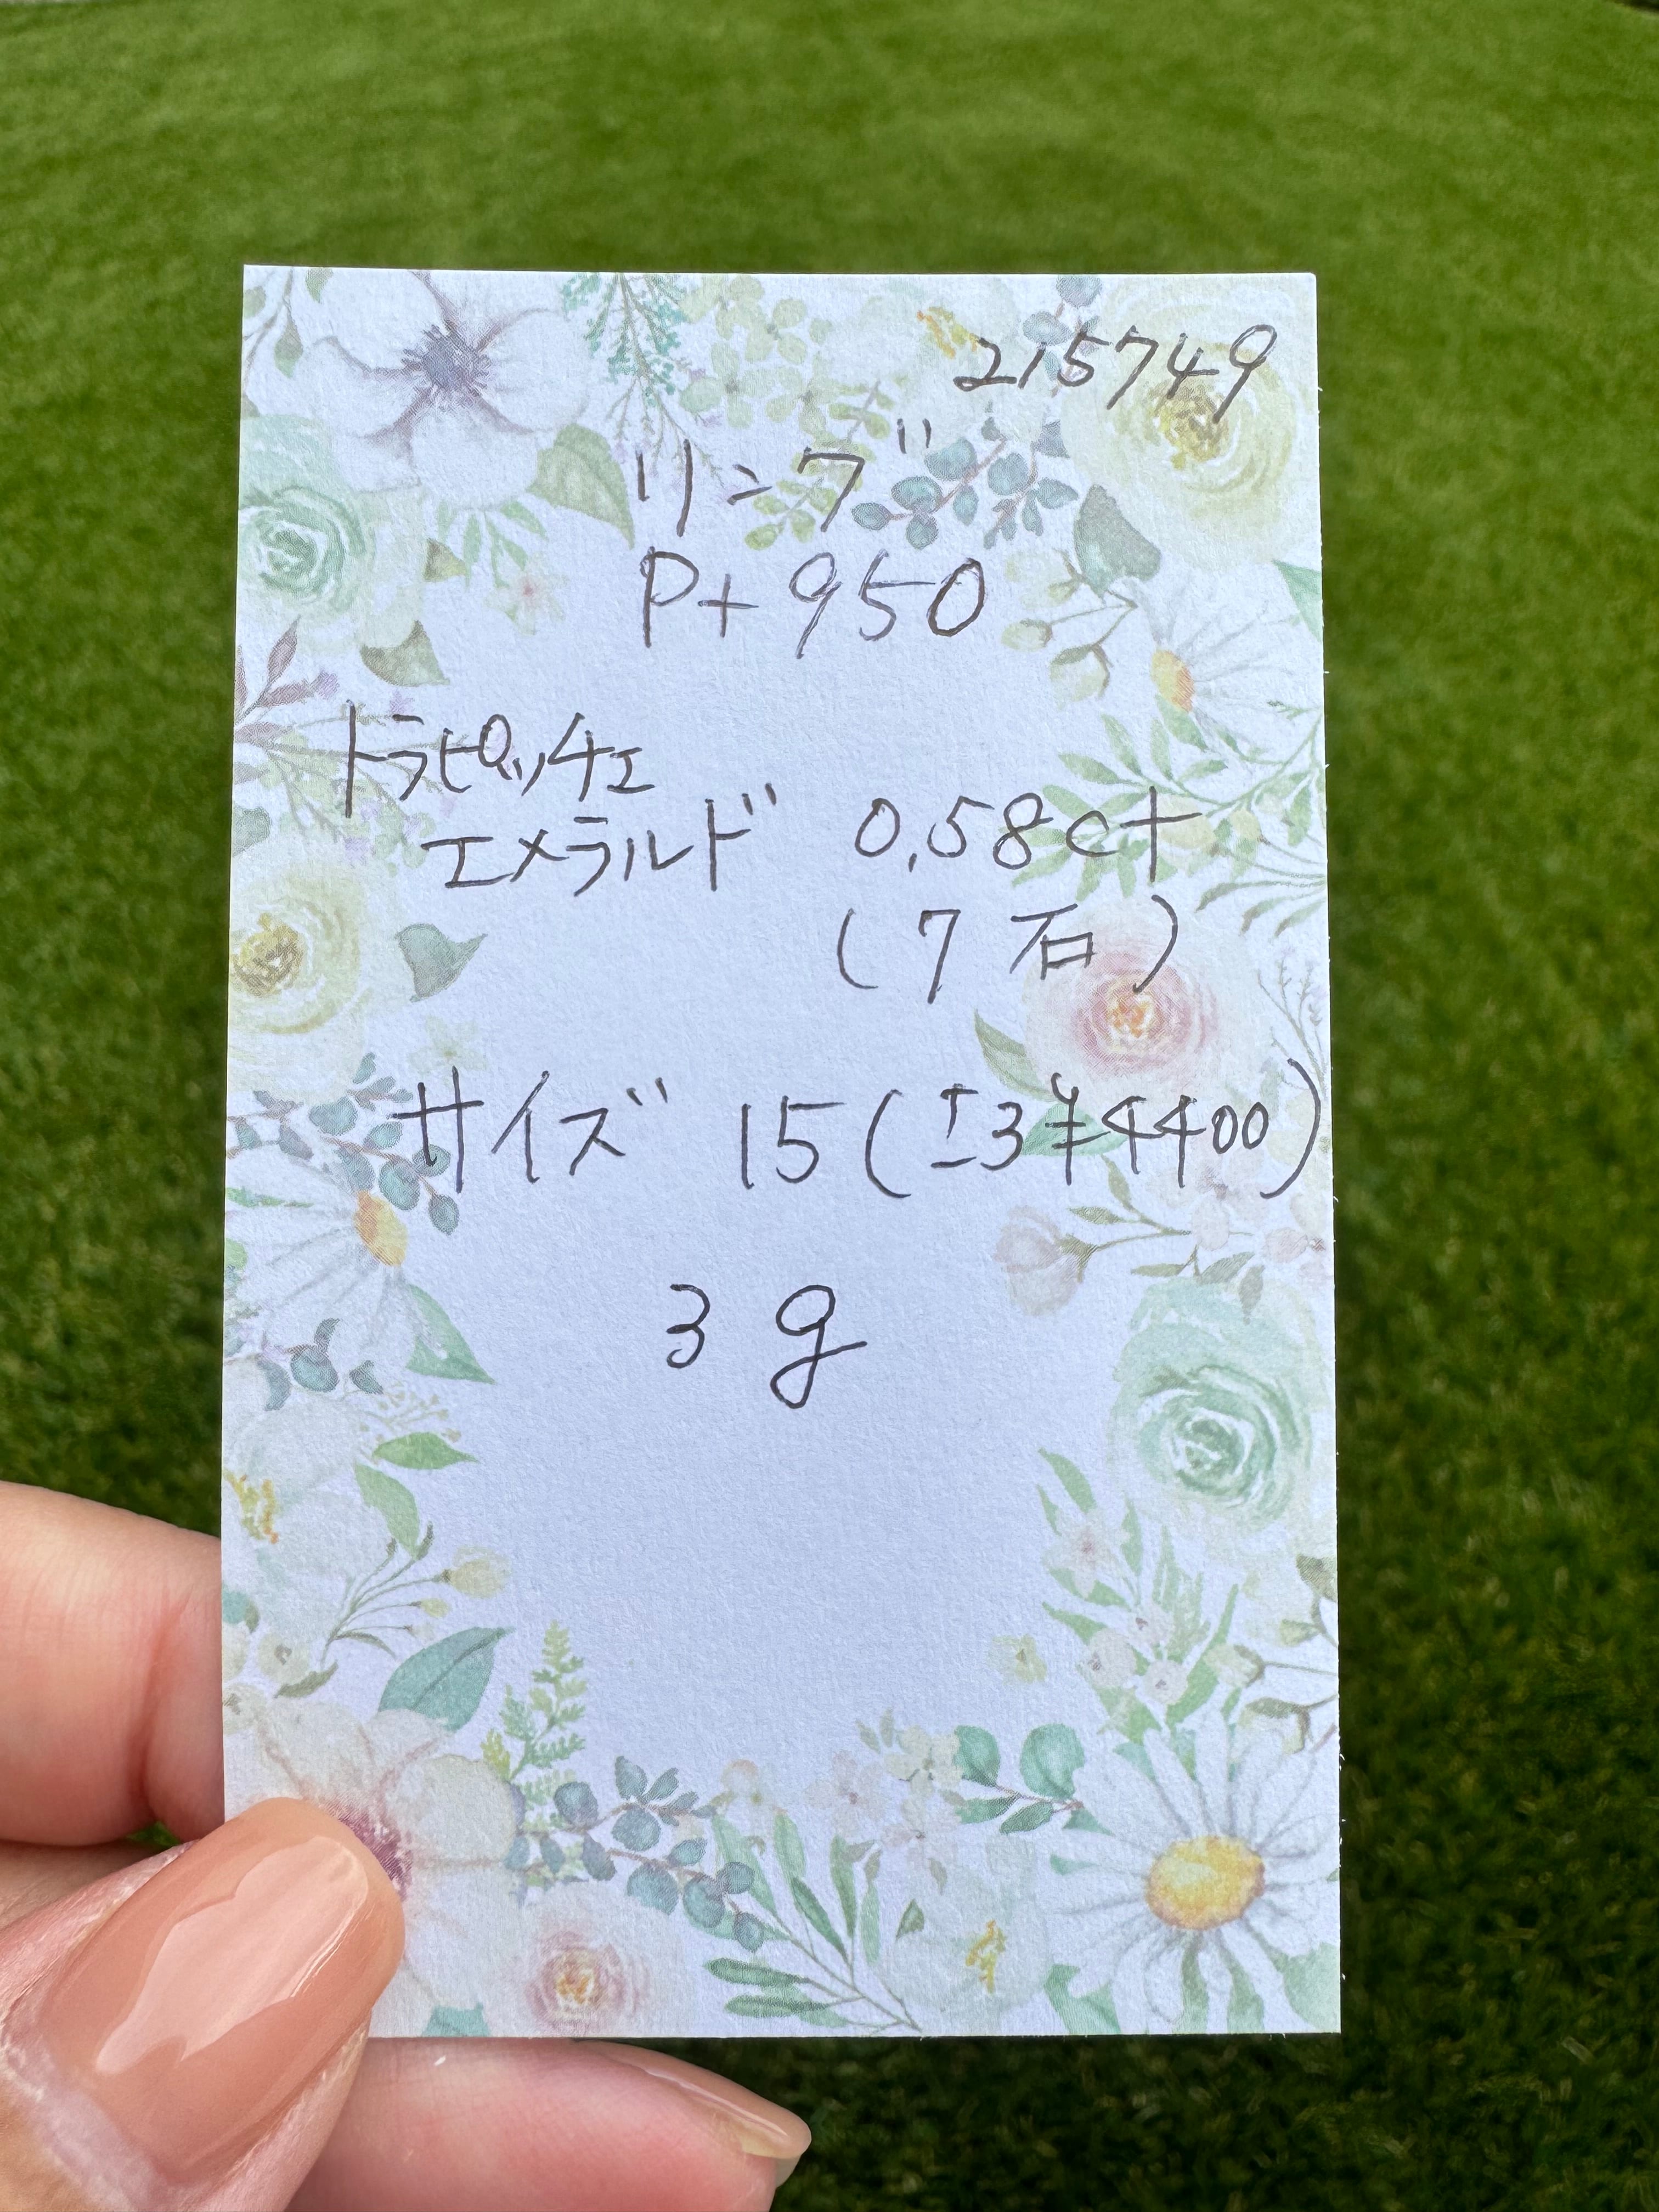 215749
リング
Pt 950
トラピッチェ
エメラルド 0.58ct
(7石)
サイズ 15(±3¥4400)
3g